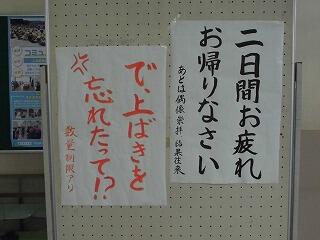 二日間お疲れ
お帰りなさい
あとは偶像崇拝 結果往来
で、上ばきを
忘れたって!?
数量制限アリ
コミュ